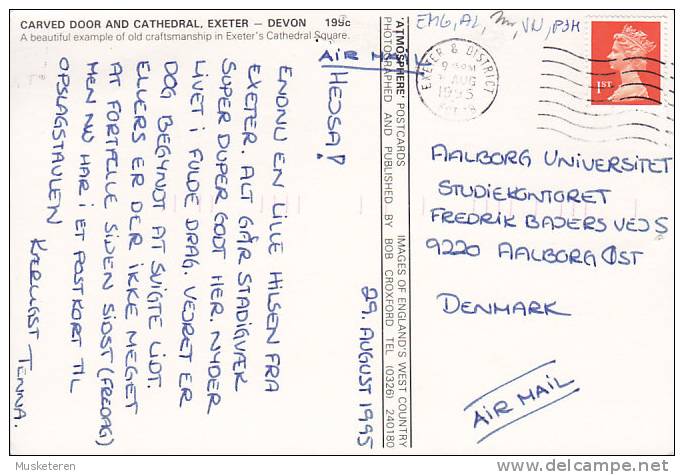 CARVED DOOR AND CATHEDRAL, EXETER — DEVON 199c
A beautiful example of old craftsmanship in Exeter's Cathedral Square.
AIR MAIL
29. AUGUST 1995
HEJSA!
ENDNU EN LILLE HILSEN FRA
EXETER. ALT GÅR STADIGVÆK
SUPER DUPER GODT HER. NYDER
LIVET I FULDE DRAG. VEJRET ER
DOG BEGYNDT AT SVIGTE LIDT.
ELLERS ER DER IKKE MEGET
AT FORTÆLLE SIDEN SIDST (FREDAG)
MEN NU HAR I ET POSTKORT TIL
OPSLAGSTAVLEN
KÆRLIGST TENNA.
'ATMOSPHERE' POSTCARDS IMAGES OF ENGLAND'S WEST COUNTRY
PHOTOGRAPHED AND PUBLISHED BY BOB CROXFORD TEL (0326) 240180
EMG, AL, VN, PJH
EXETER & DISTRICT
AUG
1995
1ST
AALBORG UNIVERSITET
STUDIEKONTORET
FREDRIK BAJERS VEJ 5
9220 AALBORG ØST
DENMARK
AIR MAIL
Musketeren
delcampe.net